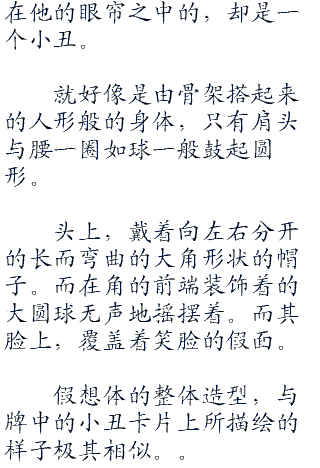 在他的眼帘之中的，却是一
个小丑。
就好像是由骨架搭起来
的人形般的身体，只有肩头
与腰一圈如球一般鼓起圆
形。
头上，戴着向左右分开
的长而弯曲的大角形状的帽
子。而在角的前端装饰着的
大圆球无声地摇摆着。而其
脸上，覆盖着笑脸的假面。
假想体的整体造型，与
牌中的小丑卡片上所描绘的
样子极其相似。。